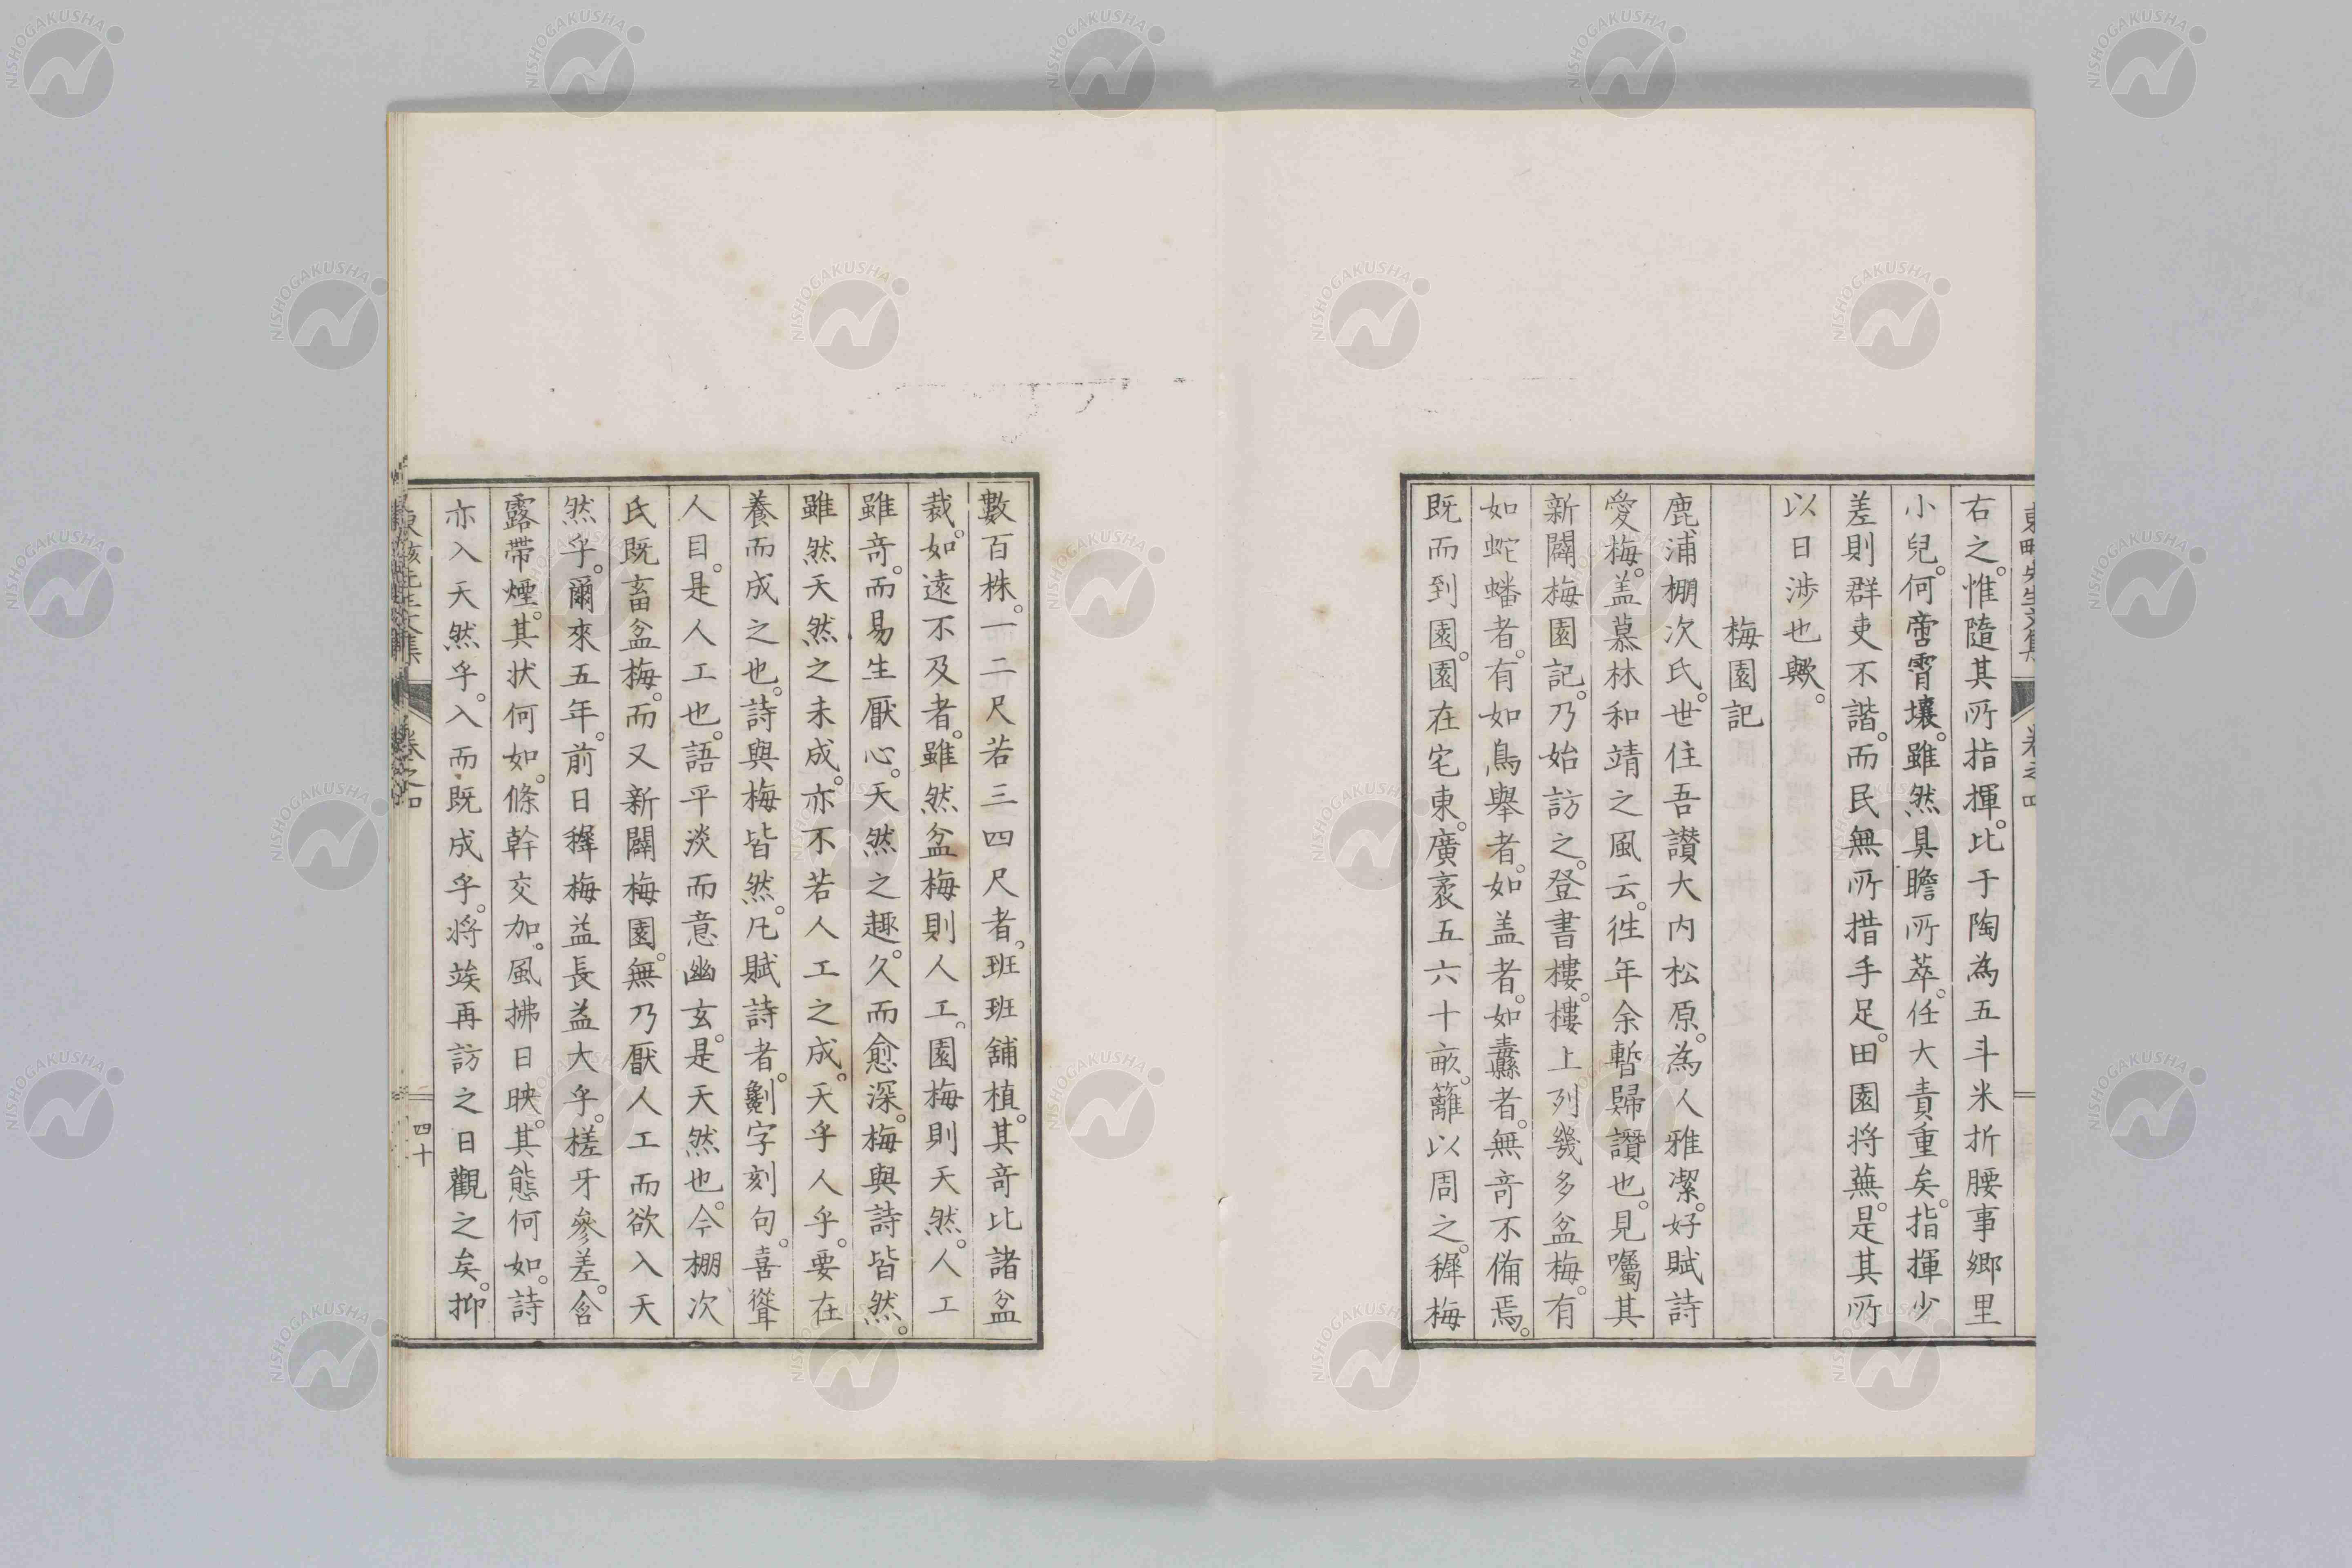 右之。惟隨其所指揮。比于陶為五斗米折腰事鄉里
小兒。何啻霄壤。雖然具瞻所萃。任大責重矣。指揮少
差則群吏不諧。而民無所措手足。田園将蕪。是其所
以日渉也歟。
梅園記
鹿浦棚次氏。世住吾讃大内松原。為人雅潔。好賦詩
愛梅。盖慕林和靖之風云。往年余暫歸讃也。見囑其
新闢梅園記。乃始訪之。登書樓。樓上列幾多盆梅。有
如蛇蟠者。有如鳥舉者。如盖者。如纛者。無竒不備焉。
既而到園。園在宅東。廣袤五六十畝。籬以周之。穉梅
數百株。一二尺若三四尺者。班班舗植。其竒比諸盆
裁。如遠不及者。雖然盆梅則人工。園梅則天然。人工
雖竒。而易生厭心。天然之趣。久而愈深。梅與詩皆然。
雖然天然之未成。亦不若人工之成。天乎人乎。要在
養而成之也。詩與梅皆然。凡賦詩者。劖字刻句。喜聳
人目。是人工也。語平淡而意幽玄。是天然也。今棚次
氏既畜盆梅。而又新闢梅園。無乃厭人工而欲入天
然乎。爾來五年。前日穉梅益長益大乎。槎牙參差。含
露帶煙。其状何如。條幹交加。風拂日映。其態何如。詩
亦入天然乎。入而既成乎。将竢再訪之日觀之矣。抑
東畡先生文集 卷之四 四十